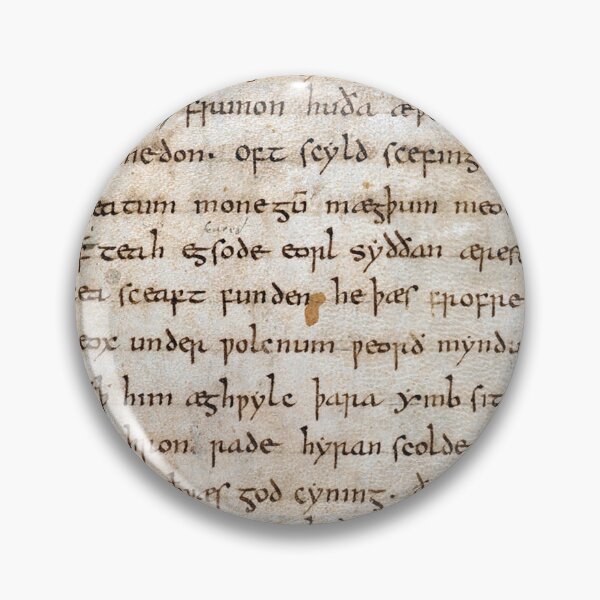 frunon huða æ
medon. oft scyld scefing
eatum monegū mægþum meo
f teah egsode eorl syððan æres
ea sceaft funden he þæs frofre
eox under ƿolcnum ƿeorð mynd
ꝥ him æghƿylc þara ymb sit
hron rade hyran scolde
ƿæs god cyning. ð